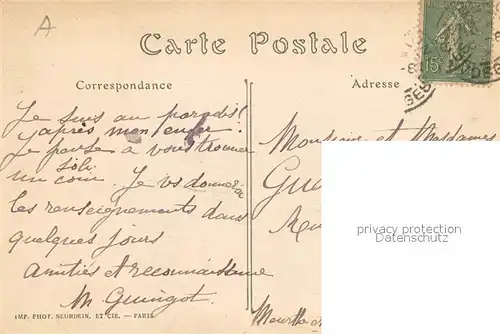 A
Carte Postale
Correspondance
Adresse
15
GES
Je suis au paradis!
après mon enfer.
Je pense à vous trouver
un joli coin. Je vs donnerai
les renseignements dans
quelques jours
Amitiés et reconnaissance
M. Guingot.
Monsieur et Mesdames
Gu
privacy protection
Datenschutz
Meurthe
IMP. PHOT. NEURDEIN. ET CIE. — PARIS